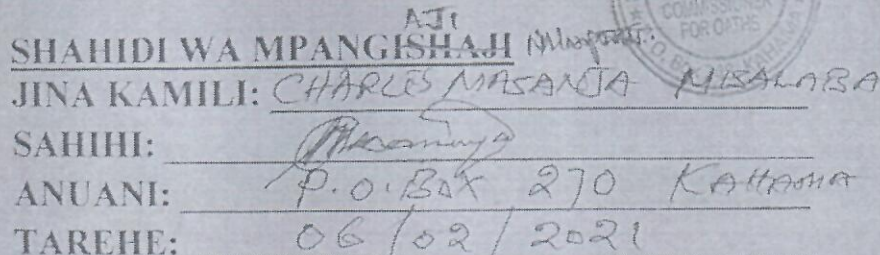 COMMISSIONER
FOR OATHS
AJI
SHAHIDI WA MPANGISHAJI
JINA KAMILI: CHARLES MASANJA MISALABA
SAHIHI:
ANUANI: P.O. BOX 270 KAHAMA
TAREHE: 06/02/2021